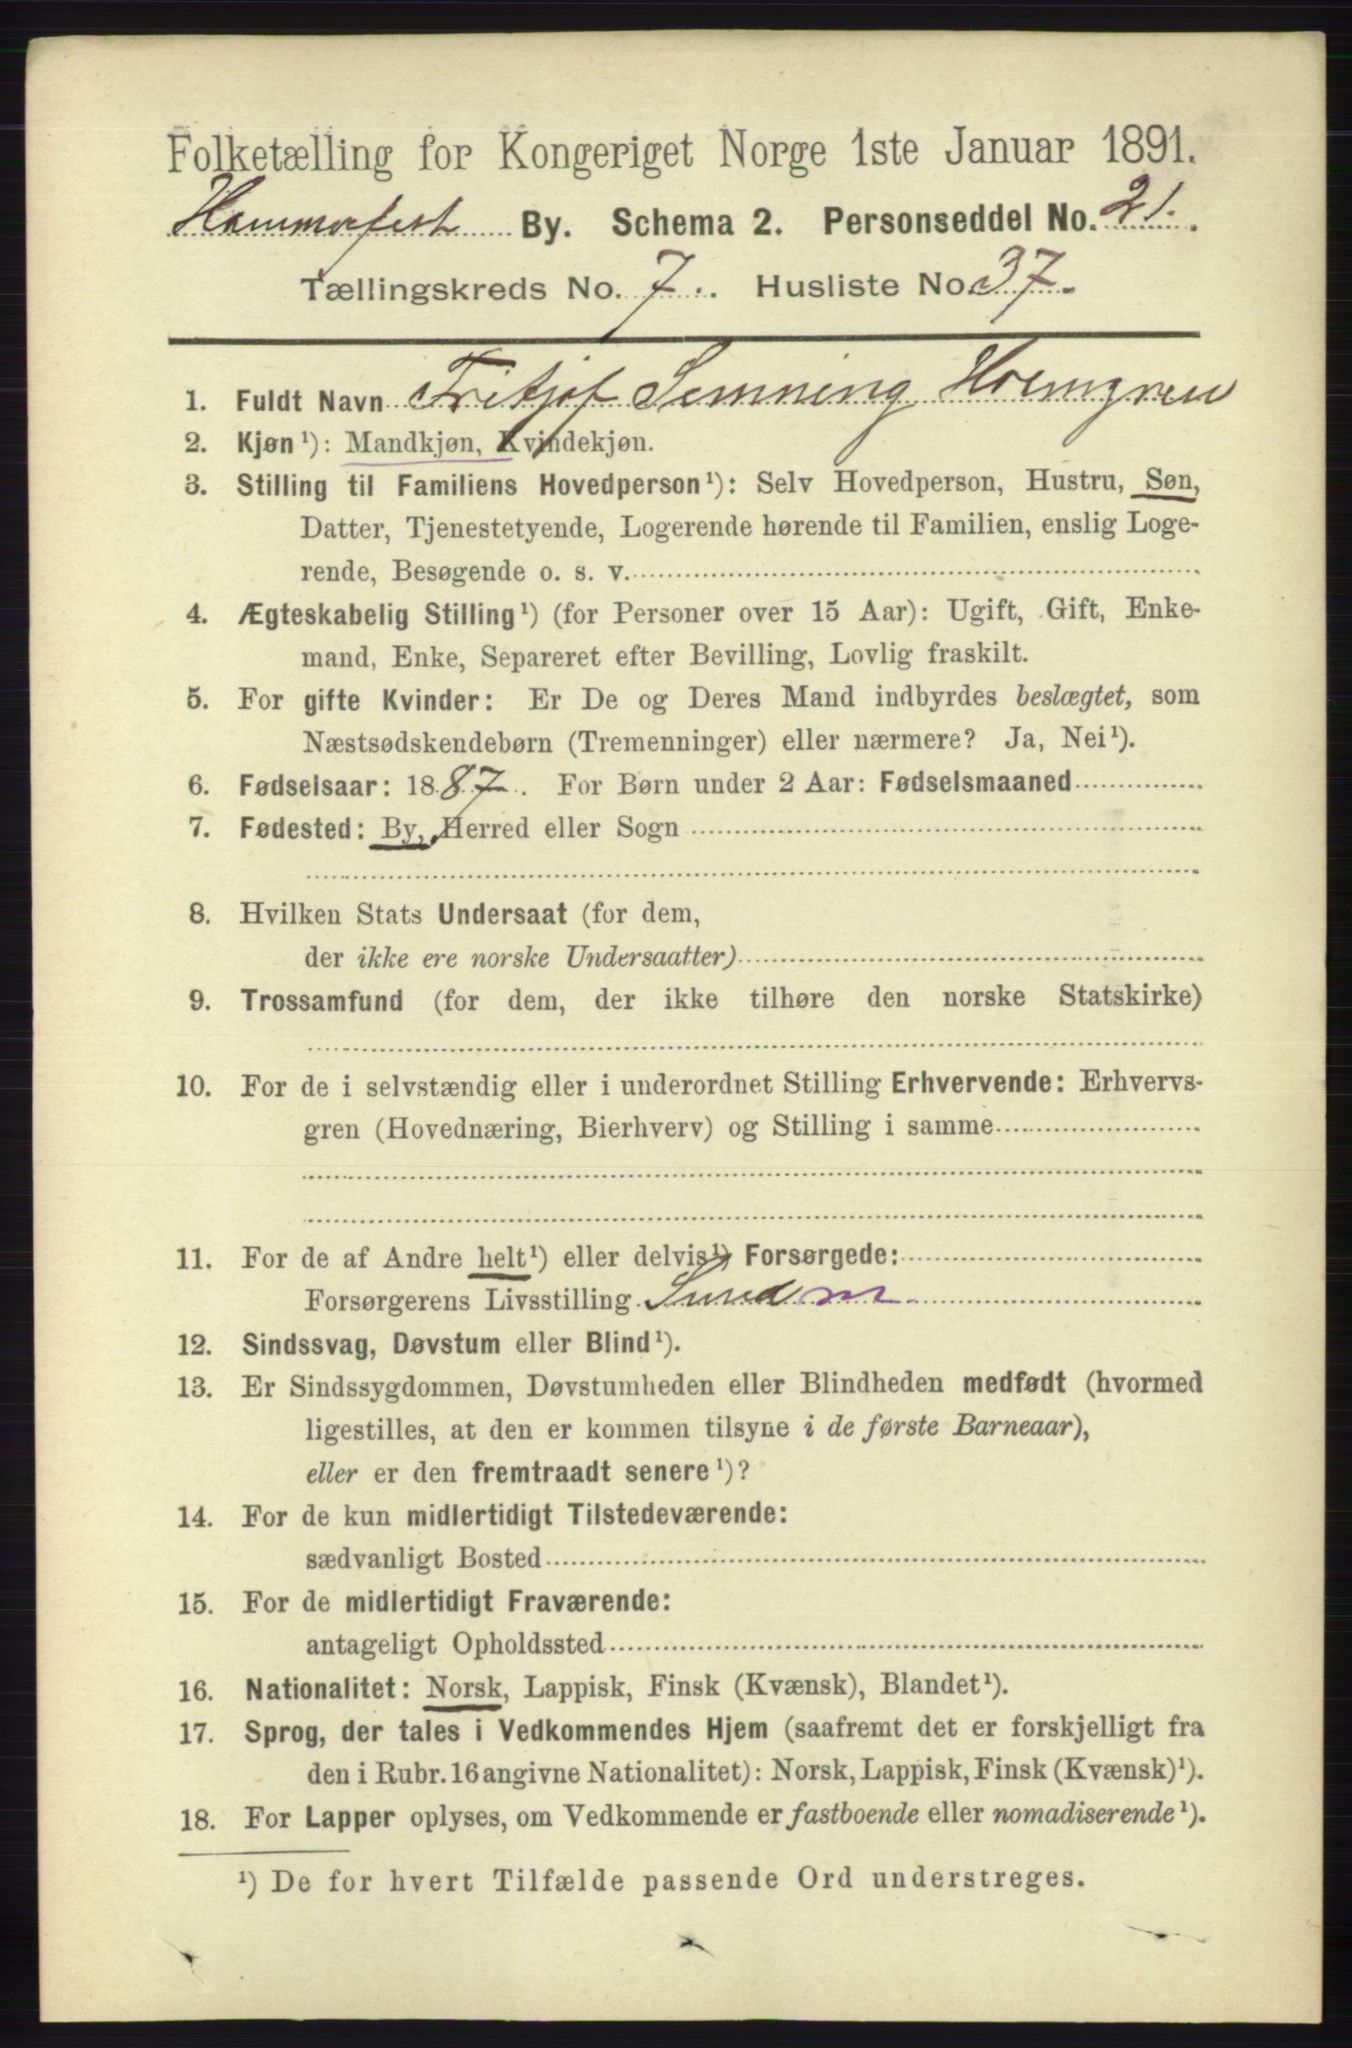 Folketælling for Kongeriget Norge 1ste Januar 1891.
Hammerfest By. Schema 2. Personseddel No. 21.
Tællingskreds No. 7. Husliste No. 37.
1. Fuldt Navn Fritjof Semning Holmgren
2. Kjøn¹): Mandkjøn, Kvindekjøn.
3. Stilling til Familiens Hovedperson¹): Selv Hovedperson, Hustru, Søn,
Datter, Tjenestetyende, Logerende hørende til Familien, enslig Loge-
rende, Besøgende o. s. v.
4. Ægteskabelig Stilling¹) (for Personer over 15 Aar): Ugift, Gift, Enke-
mand, Enke, Separeret efter Bevilling, Lovlig fraskilt.
5. For gifte Kvinder: Er De og Deres Mand indbyrdes beslægtet, som
Næstsødskendebørn (Tremenninger) eller nærmere? Ja, Nei¹).
6. Fødselsaar: 1887. For Børn under 2 Aar: Fødselsmaaned
7. Fødested: By, Herred eller Sogn
8. Hvilken Stats Undersaat (for dem,
der ikke ere norske Undersaatter)
9. Trossamfund (for dem, der ikke tilhøre den norske Statskirke)
10. For de i selvstændig eller i underordnet Stilling Erhvervende: Erhvervs-
gren (Hovednæring, Bierhverv) og Stilling i samme
11. For de af Andre helt¹) eller delvis¹) Forsørgede:
Forsørgerens Livsstilling Smed m
12. Sindssvag, Døvstum eller Blind¹).
13. Er Sindssygdommen, Døvstumheden eller Blindheden medfødt (hvormed
ligestilles, at den er kommen tilsyne i de første Barneaar),
eller er den fremtraadt senere¹)?
14. For de kun midlertidigt Tilstedeværende:
sædvanligt Bosted
15. For de midlertidigt Fraværende:
antageligt Opholdssted
16. Nationalitet: Norsk, Lappisk, Finsk (Kvænsk), Blandet¹).
17. Sprog, der tales i Vedkommendes Hjem (saafremt det er forskjelligt fra
den i Rubr. 16 angivne Nationalitet): Norsk, Lappisk, Finsk (Kvænsk)¹).
18. For Lapper oplyses, om Vedkommende er fastboende eller nomadiserende¹).
¹) De for hvert Tilfælde passende Ord understreges.